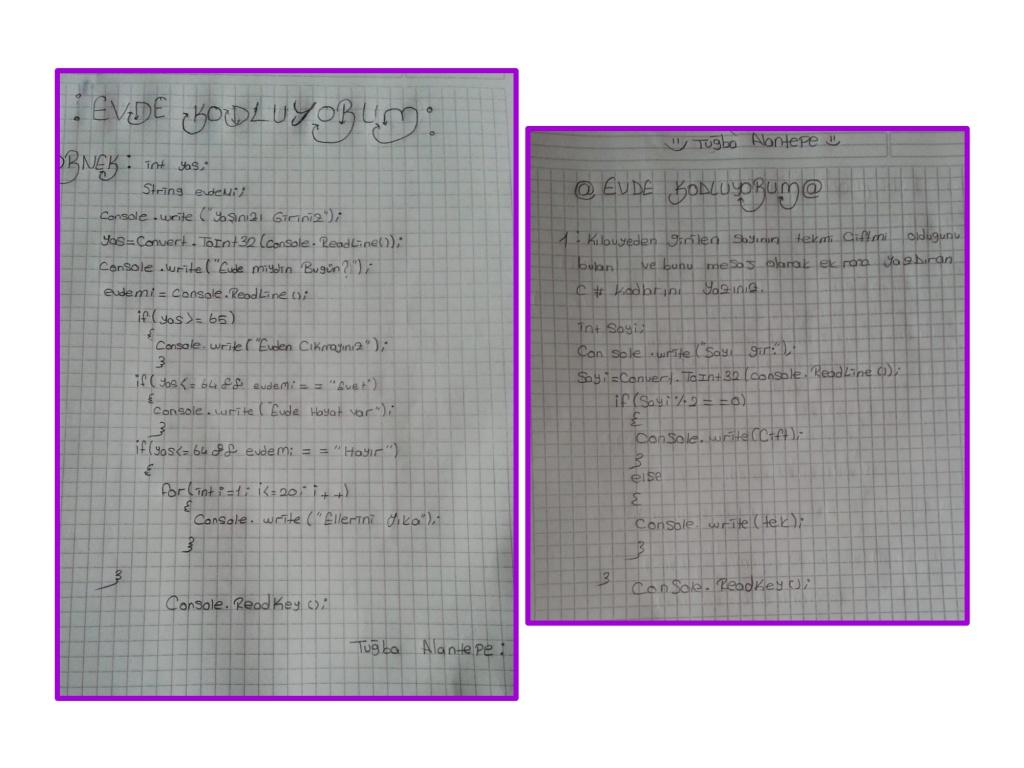 : EVDE KODLUYORUM :
ÖRNEK : int yas;
String evdemi;
Console.write("Yasınızı Giriniz");
yas=Convert.ToInt32(Console.ReadLine());
Console.write("Evde miydin Bugün?");
evdemi = Console.ReadLine();
if(yas>= 65)
{
Console.write("Evden Cıkmayınız");
}
if(yas<= 64 && evdemi = = "Evet")
{
Console.write("Evde Hayat var");
}
if(yas<= 64 && evdemi = = "Hayır")
{
for(int i=1; i<=20; i++)
{
Console.write("Ellerini Yıka");
}
}
Console.ReadKey();
Tuğba Alantepe :
Tuğba Alantepe
@ EVDE KODLUYORUM@
1: Kılavyeden girilen sayının tekmi Ciftmi oldugunu
bulan ve bunu mesaj olarak ekrana yazdıran
C# kodlarını yazınız.
int Sayi;
Console.write("Sayı gir:");
Sayi=Convert.ToInt32(console.ReadLine());
if(Sayi%2= =0)
{
Console.write(Cift);
}
else
{
Console.write(tek);
}
} Console.ReadKey();